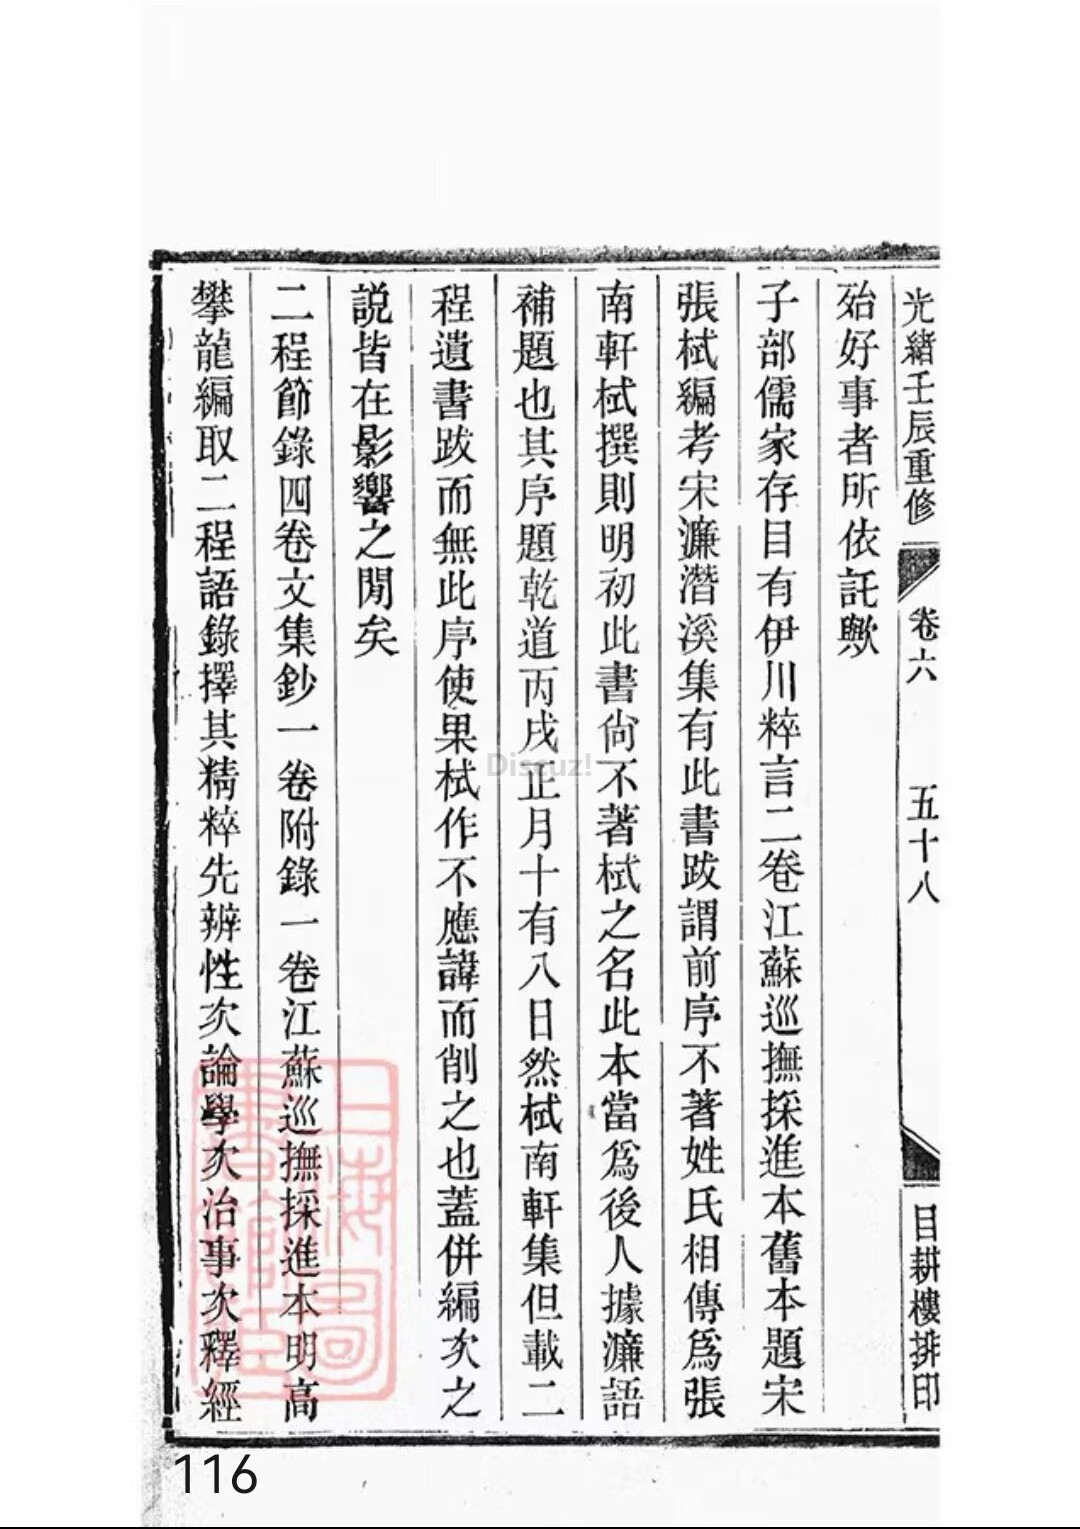 光緒壬辰重修 卷六 五十八 目耕樓排印
殆好事者所依託歟
子部儒家存目有伊川粹言二卷江蘇巡撫採進本舊本題宋
張栻編考宋濂潛溪集有此書跋謂前序不著姓氏相傳爲張
南軒栻撰則明初此書尙不著栻之名此本當爲後人據濂語
補題也其序題乾道丙戌正月十有八日然栻南軒集但載二
程遺書跋而無此序使果栻作不應諱而削之也蓋併編次之
説皆在影響之閒矣
二程節錄四卷文集鈔一卷附錄一卷江蘇巡撫採進本明高
攀龍編取二程語錄擇其精粹先辨性次論學次治事次釋經
上海圖
書館藏
Discuz!
116